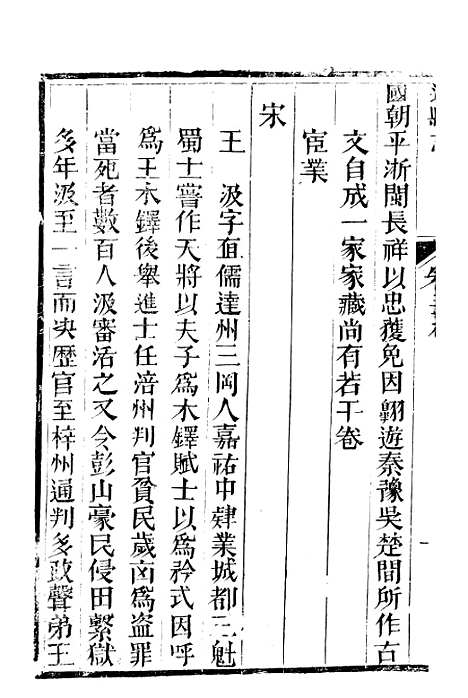 國朝平浙閩長祥以忠獲免因翺遊秦豫吳楚間所作古
文自成一家家藏尚有若干卷
宦業
宋
王　汲字直儒達州三岡人嘉祐中肄業城都三魁
蜀士嘗作天將以夫子爲木鐸賦士以爲矜式因呼
爲王木鐸後舉進士任涪州判官貧民歲㐫爲盗罪
當死者數百人汲審活之又令彭山豪民侵田繫獄
多年汲至一言而决歷官至梓州通判多政聲弟王